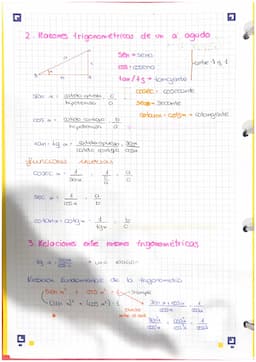 2. Razones trigonométricas de un a agudo
sen = seno
cos = coseno
entre -1 y 1
tan/tg = tangente
cosec = cosecante
sec = secante
cotan = cotg = cotangente
sen α = cateto opuesto / hipotenusa = c / a
cos α = cateto contiguo / hipotenusa = b / a
tan = tg α = cateto opuesto / cateto contiguo = senα / cosα
funciones inversas
cosec = 1 / senα = a / c
sec = 1 / cosα = a / b
cotan = cotg = 1 / tgα = b / c
3. Relaciones entre razones trigonométricas
tg α = senα / cosα
Relación fundamental de la trigonometría
sen α² + cos α² = 1 → siempre
(sen α)² + (cos α)² = 1